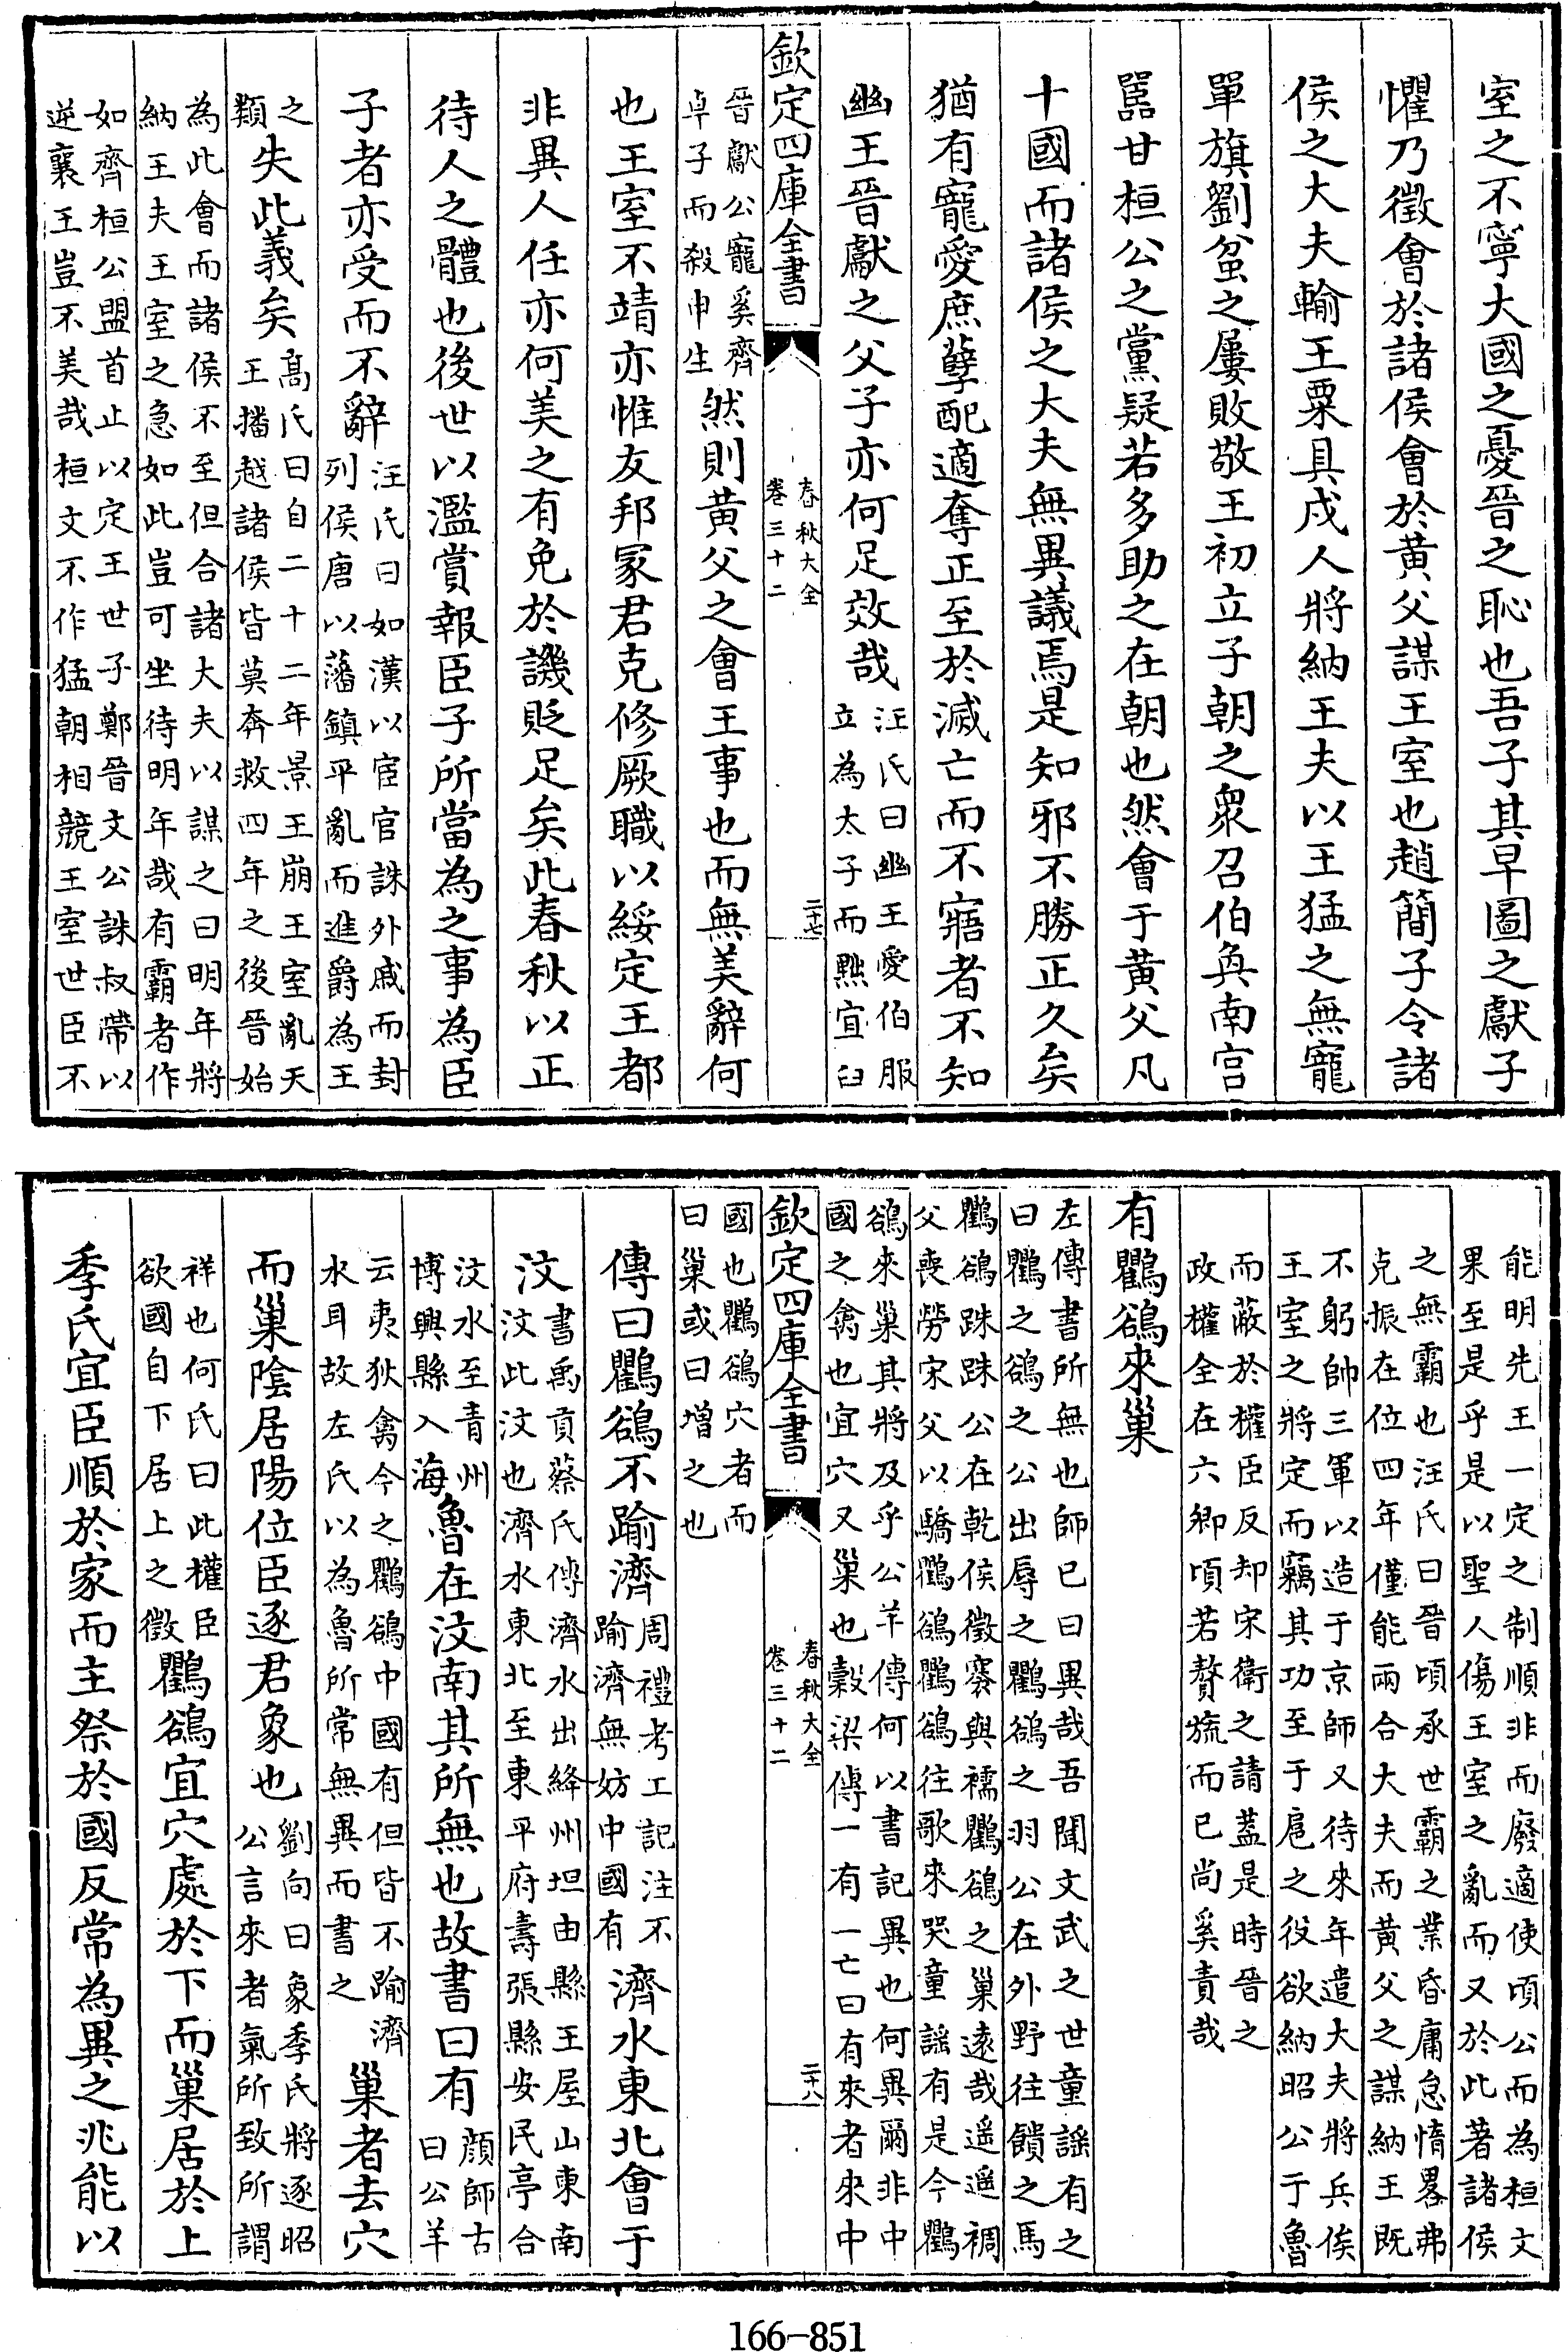 室之不寧大國之憂晉之恥也吾子其早圖之獻子
懼乃徵會於諸侯會於黄父謀王室也趙簡子令諸
侯之大夫輸王粟具戍人將納王夫以王猛之無寵
單旗劉蚠之屢敗敬王初立子朝之衆召伯奐南宫
嚚甘桓公之黨疑若多助之在朝也然會于黄父凡
十國而諸侯之大夫無異議焉是知邪不勝正久矣
猶有寵愛庶孽配適奪正至於滅亡而不寤者不知
幽王晉獻之父子亦何足效哉
汪氏曰幽王愛伯服
立為太子而黜宜臼
欽定四庫全書
春秋大全
卷三十二
二十七
晉獻公寵奚齊
卓子而殺申生
然則黄父之會王事也而無美辭何
也王室不靖亦惟友邦冢君克修厥職以綏定王都
非異人任亦何美之有免於譏貶足矣此春秋以正
待人之體也後世以濫賞報臣子所當為之事為臣
子者亦受而不辭
汪氏曰如漢以宦官誅外戚而封
列侯唐以藩鎮平亂而進爵為王
之
類
失此義矣
髙氏曰自二十二年景王崩王室亂天
王播越諸侯皆莫奔救四年之後晉始
為此會而諸侯不至但合諸大夫以謀之曰明年將
納王夫王室之急如此豈可坐待明年哉有霸者作
如齊桓公盟首止以定王世子鄭晉文公誅叔帶以
逆襄王豈不美哉桓文不作猛朝相競王室世臣不
能明先王一定之制順非而廢適使頃公而為桓文
果至是乎是以聖人傷王室之亂而又於此著諸侯
之無霸也汪氏曰晉頃承世霸之業昏庸怠惰畧弗
克振在位四年僅能兩合大夫而黄父之謀納王既
不躬帥三軍以造于京師又待來年遣大夫將兵俟
王室之將定而竊其功至于扈之役欲納昭公于魯
而蔽於權臣反却宋衛之請蓋是時晉之
政權全在六卿頃若贅旒而已尚奚責哉
有鸜鵒來巢
左傳書所無也師已曰異哉吾聞文武之世童謡有之
曰鸜之鵒之公出辱之鸜鵒之羽公在外野往饋之馬
鸜鵒跦跦公在乾侯徵褰與襦鸜鵒之巢逺哉遥遥裯
父喪勞宋父以驕鸜鵒鸜鵒往歌來哭童謡有是今鸜
鵒來巢其將及乎公羊傳何以書記異也何異爾非中
國之禽也宜穴又巢也榖梁傳一有一亡曰有來者來中
欽定四庫全書
春秋大全
卷三十二
二十八
國也鸜鵒穴者而
曰巢或曰增之也
傳曰鸜鵒不踰濟
周禮考工記注不
踰濟無妨中國有
濟水東北會于
汶
書禹貢蔡氏傳濟水出絳州垣曲縣王屋山東南
汶此汶也濟水東北至東平府壽張縣安民亭合
汶水至青州
博興縣入海
魯在汶南其所無也故書曰有
顔師古
曰公羊
云夷狄禽今之鸜鵒中國有但皆不踰濟
水耳故左氏以為魯所常無異而書之
巢者去穴
而巢陰居陽位臣逐君象也
劉向曰象季氏將逐昭
公言來者氣所致所謂
祥也何氏曰此權臣
欲國自下居上之徵
鸜鵒宜穴處於下而巢居於上
季氏宜臣順於家而主祭於國反常為異之兆能以
166-851